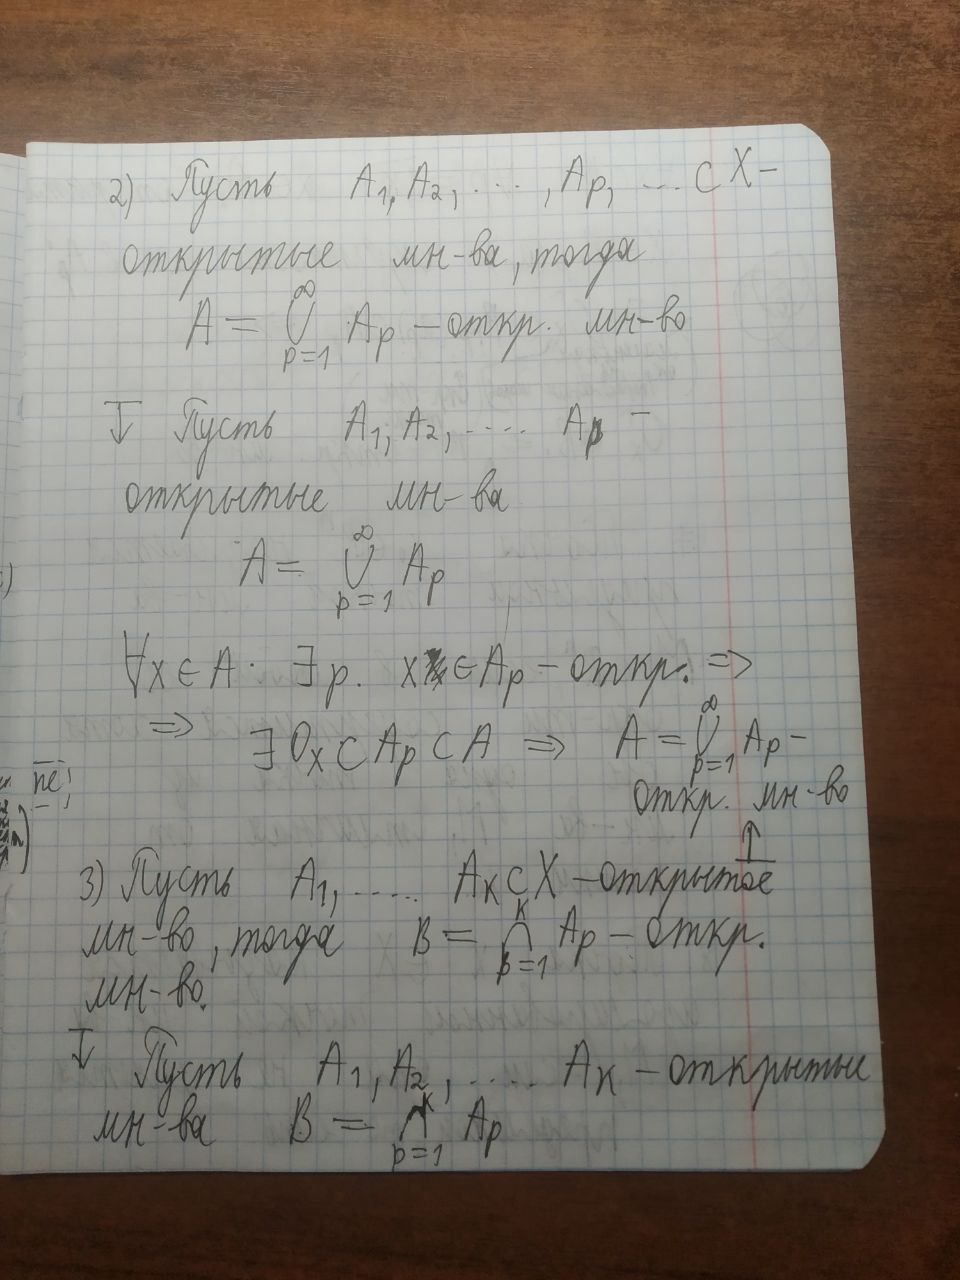 2) Пусть A₁, A₂, ..., Aₚ, ... ⊂ X –
открытые мн-ва, тогда
A = ∞⋃p=1 Aₚ – откр. мн-во
↧ Пусть A₁, A₂, .... Aₚ –
открытые мн-ва
A = ∞⋃p=1 Aₚ
∀x ∈ A. ∃ p. x ∈ Aₚ – откр. ⇒
⇒ ∃ Oₓ ⊂ Aₚ ⊂ A ⇒ A = ∞⋃p=1 Aₚ –
откр. мн-во
↥
3) Пусть A₁, .... Aₖ ⊂ X – открытое
мн-во, тогда B = k⋂p=1 Aₚ – откр.
мн-во.
↧ Пусть A₁, A₂, .... Aₖ – открытые
мн-ва B = k⋂p=1 Aₚ